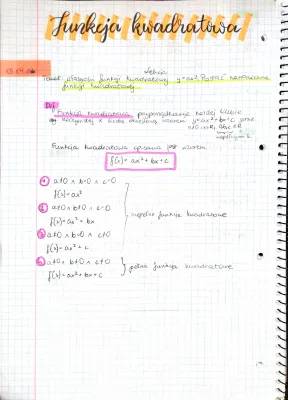 Funkcja kwadratowa
Lekcja
Temat: własności funkcji kwadratowej y=ax². Postać
funkcji kwadratowej.
Def.
Funkcja kwadratowa przyporządkowuje każdej liczbie
rzeczywistej x liczbę określoną wzorem y=ax²+bx+c gdzie
a≠0
Funkcja kwadratowa opisana jest wzorem:
f(x)= ax²+bx+c
a≠0 ∧ b=0 ∧ c=0
f(x)=ax²
a≠0 ∧ b≠0 ∧ c=0
f(x)= ax²+bx
niepełne funkcje kwadratowe
a≠0 ∧ b=0 ∧ c≠0
f(x)=ax²+c
a≠0 ∧ b≠0 ∧ c≠0
f(x)=ax²+bx+c
pełna funkcja kwadratowa